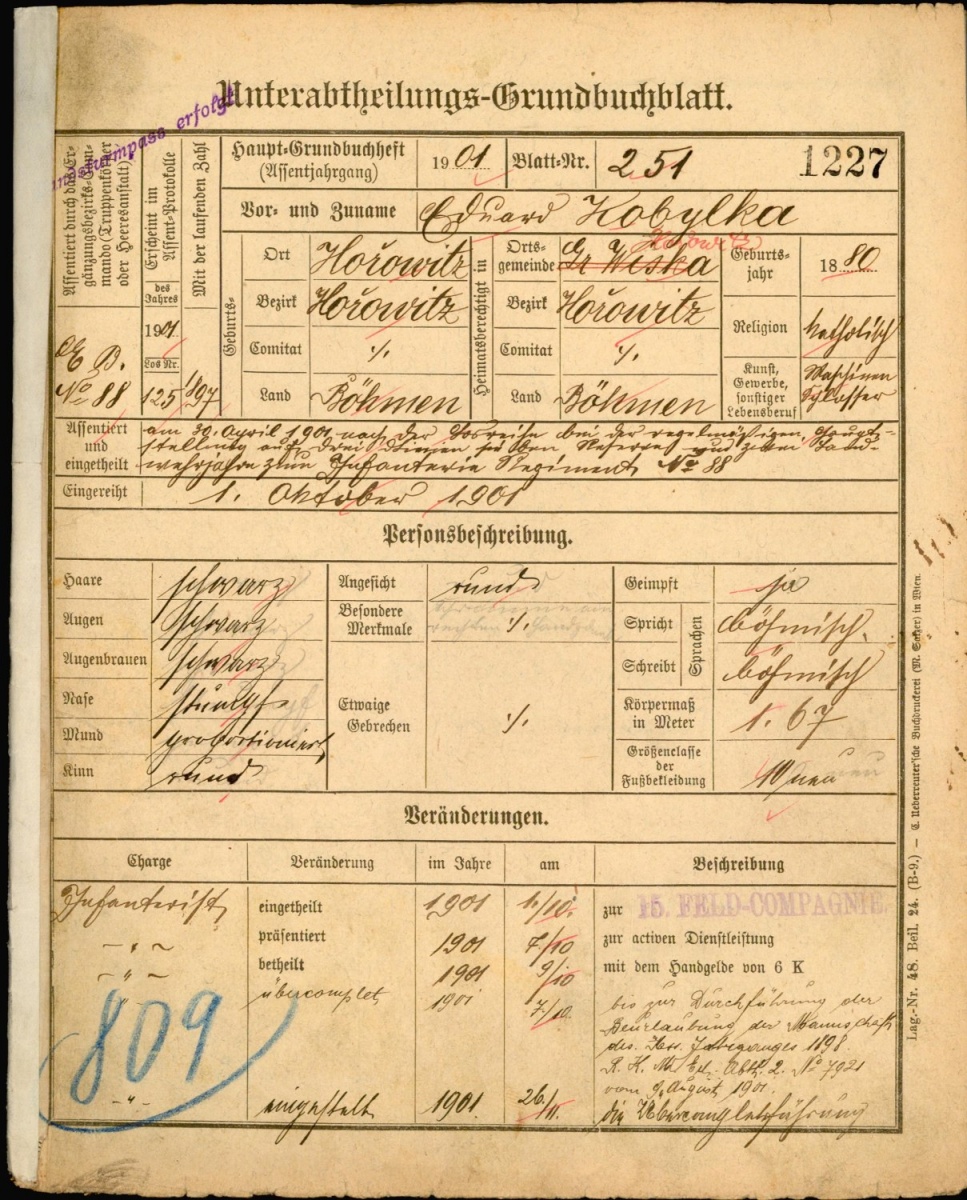 Unterabtheilungs-Grundbuchblatt.
Landsturmpass erfolgt
Assentiert durch das Er-
gänzungsbezirks-Com-
mando (Truppenkörper
oder Heeresanstalt)
E. B.
No 88
Erscheint im
Assent-Protokolle
des
Jahres
1901
Los Nr.
125
Mit der laufenden Zahl
Haupt-Grundbuchheft
(Assentjahrgang)
1901
Blatt-Nr.
251
1227
Vor- und Zuname
Eduard Kobylka
Geburts-
Ort Hořowitz
Bezirk Hořowitz
Comitat ·/.
Land Böhmen
Heimatsberechtigt in
Orts-
gemeinde Gr Wiska
Hořowitz
Bezirk Hořowitz
Comitat ·/.
Land Böhmen
Geburts-
jahr 1880
Religion katholisch
Kunst,
Gewerbe,
sonstiger
Lebensberuf
Maschinen
Schlosser
Assentiert
und
eingetheilt
am 30. April 1901 nach der Losreihe bei der regelmäßigen Haupt-
stellung auf drei Linien sieben Reserve und zwei Land-
wehrjahre zum Infanterie Regiment No 88
Eingereiht 1. Oktober 1901
Personsbeschreibung.
Haare schwarz
Augen schwarz
Augenbrauen schwarz
Nase stumpf
Mund proportioniert
Kinn rund
Angesicht rund
Besondere
Merkmale ·/.
Etwaige
Gebrechen ·/.
Geimpft ja
Sprachen
Spricht böhmisch
Schreibt böhmisch
Körpermaß
in Meter 1.67
Größenclasse
der
Fußbekleidung
10 neu
Veränderungen.
Charge Veränderung im Jahre am Beschreibung
Infanterist eingetheilt 1901 1./10. zur 15. FELD-COMPAGNIE.
– " – präsentiert 1901 7/10 zur activen Dienstleistung
– " – betheilt 1901 9/10 mit dem Handgelde von 6 K
" übercomplet 1901 7./10. bis zur Durchführung der
Beurlaubung der Mannschaft
des Ass. Jahrganges 1898.
R. K. M. Erl. Abth. 2. No 7921
vom 9. August 1901.
– " – eingestellt 1901 26./11. die Übercompletführung
809
Lag.-Nr. 48. Beil. 24. (B-9.) — C. Ueberreuter'sche Buchdruckerei (M. Salzer) in Wien.